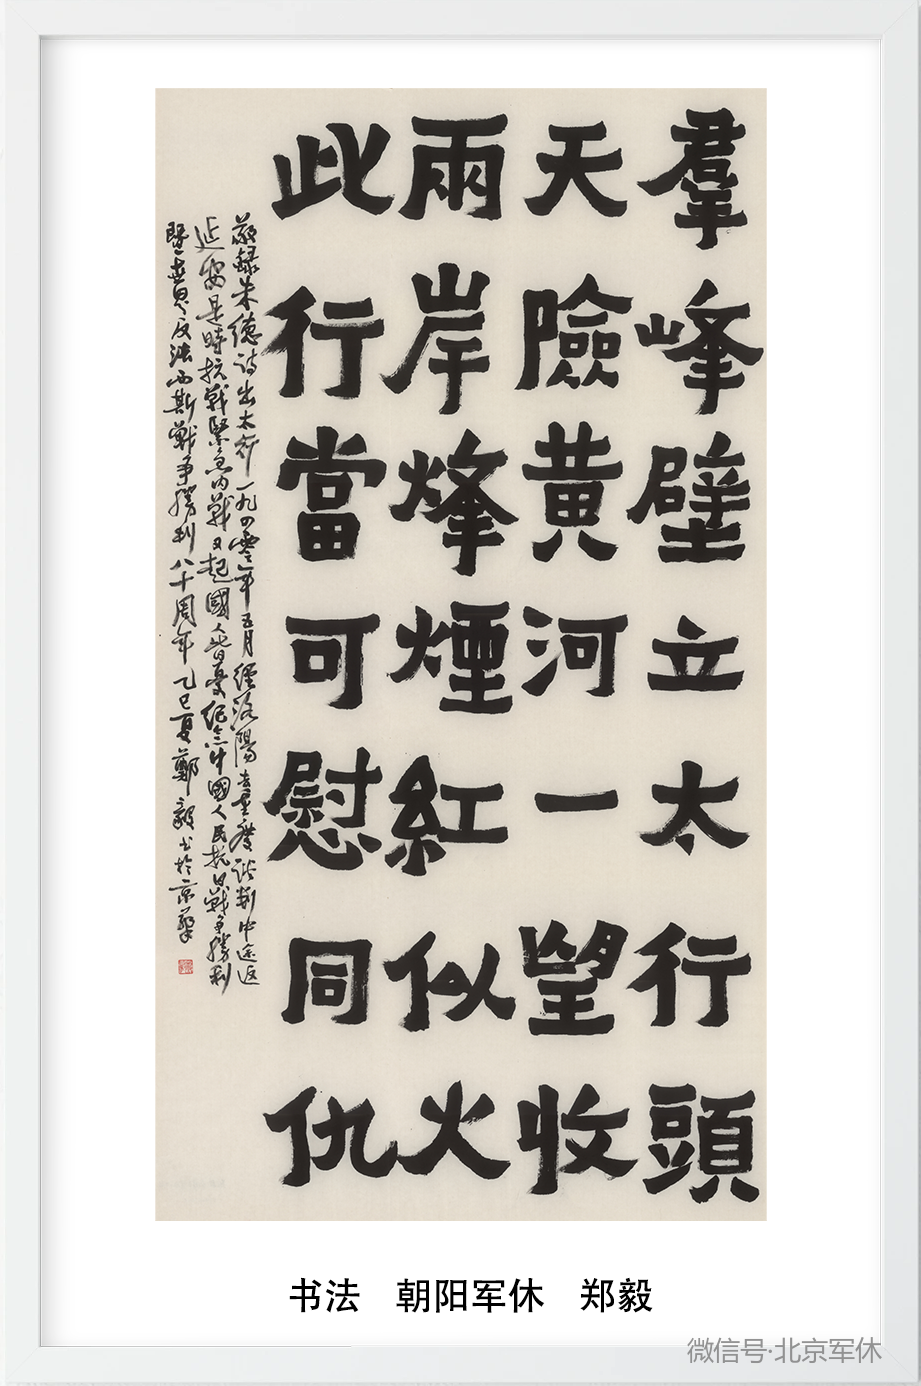 羣峰壁立太行頭
天險黄河一望收
兩岸烽煙紅似火
此行當可慰同仇
敬録朱德詩出太行一九四零年五月經洛陽去重慶談判中途返
延安是時抗戰緊急内戰又起國人皆憂紀念中國人民抗日戰争勝利
暨世界反法西斯戰争勝利八十周年乙巳夏鄭毅书於京華
书法 朝阳军休 郑毅
微信号·北京军休